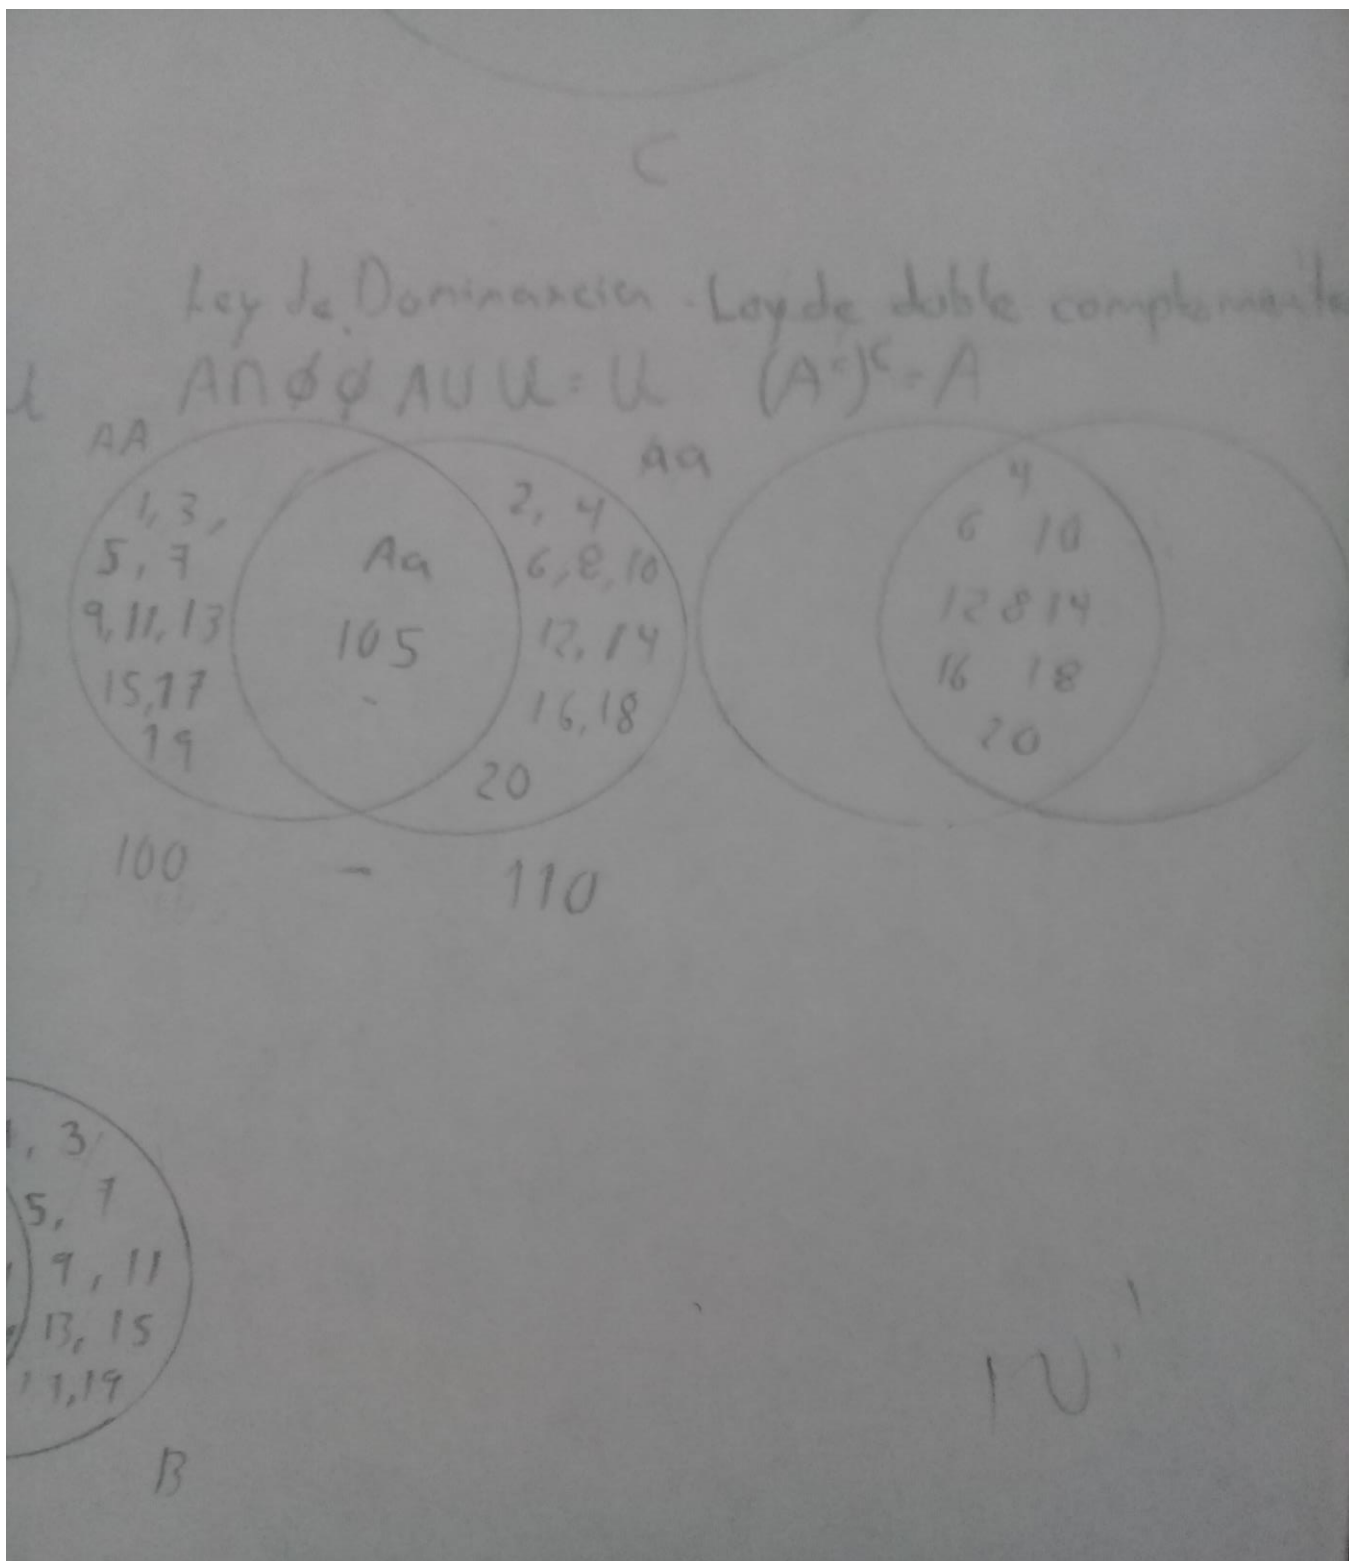 C
Ley de Dominancia - Ley de doble complemento
A∩ϕ ϕ A∪U=U (Aᶜ)ᶜ=A
AA
Aa
1, 3,
5, 7
9, 11, 13
15, 17
19
Aa
105
2, 4
6, 8, 10
12, 14
16, 18
20
4
6 10
12 8 14
16 18
20
100 - 110
, 3
5, 7
9, 11
13, 15
, 19
B
10